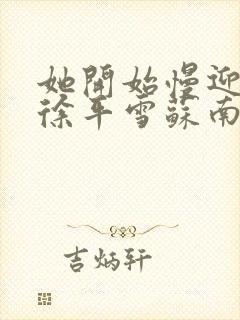 她開始慢迎
徐平雪蘇南
吉炳轩